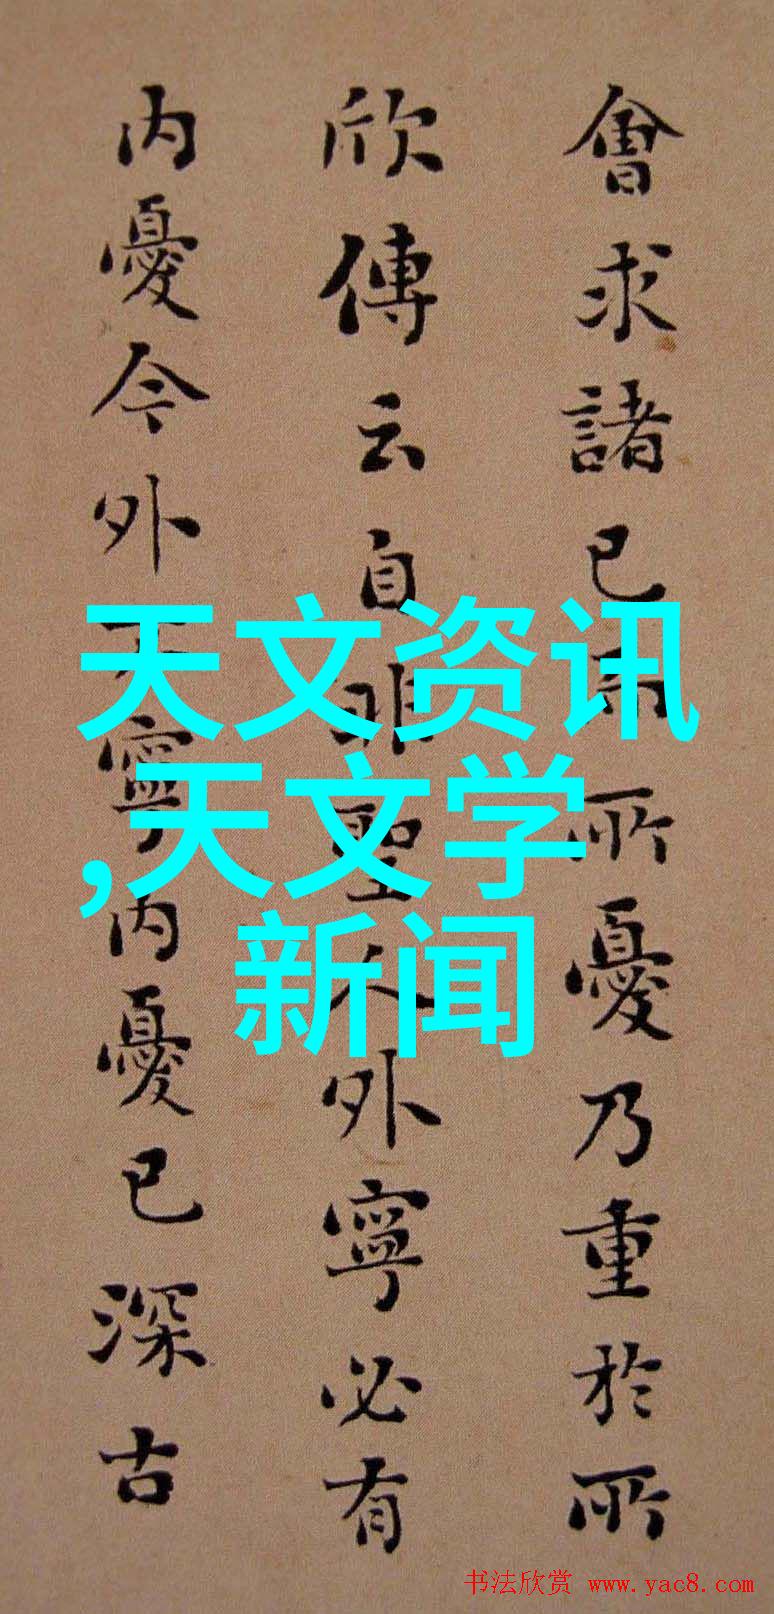 會求諸已而所憂乃重於所
欣傳云自非聖人外寧必有
内憂今外不寧内憂已深古
天文资讯
,天文学
新闻
书法欣赏 www.yac8.com